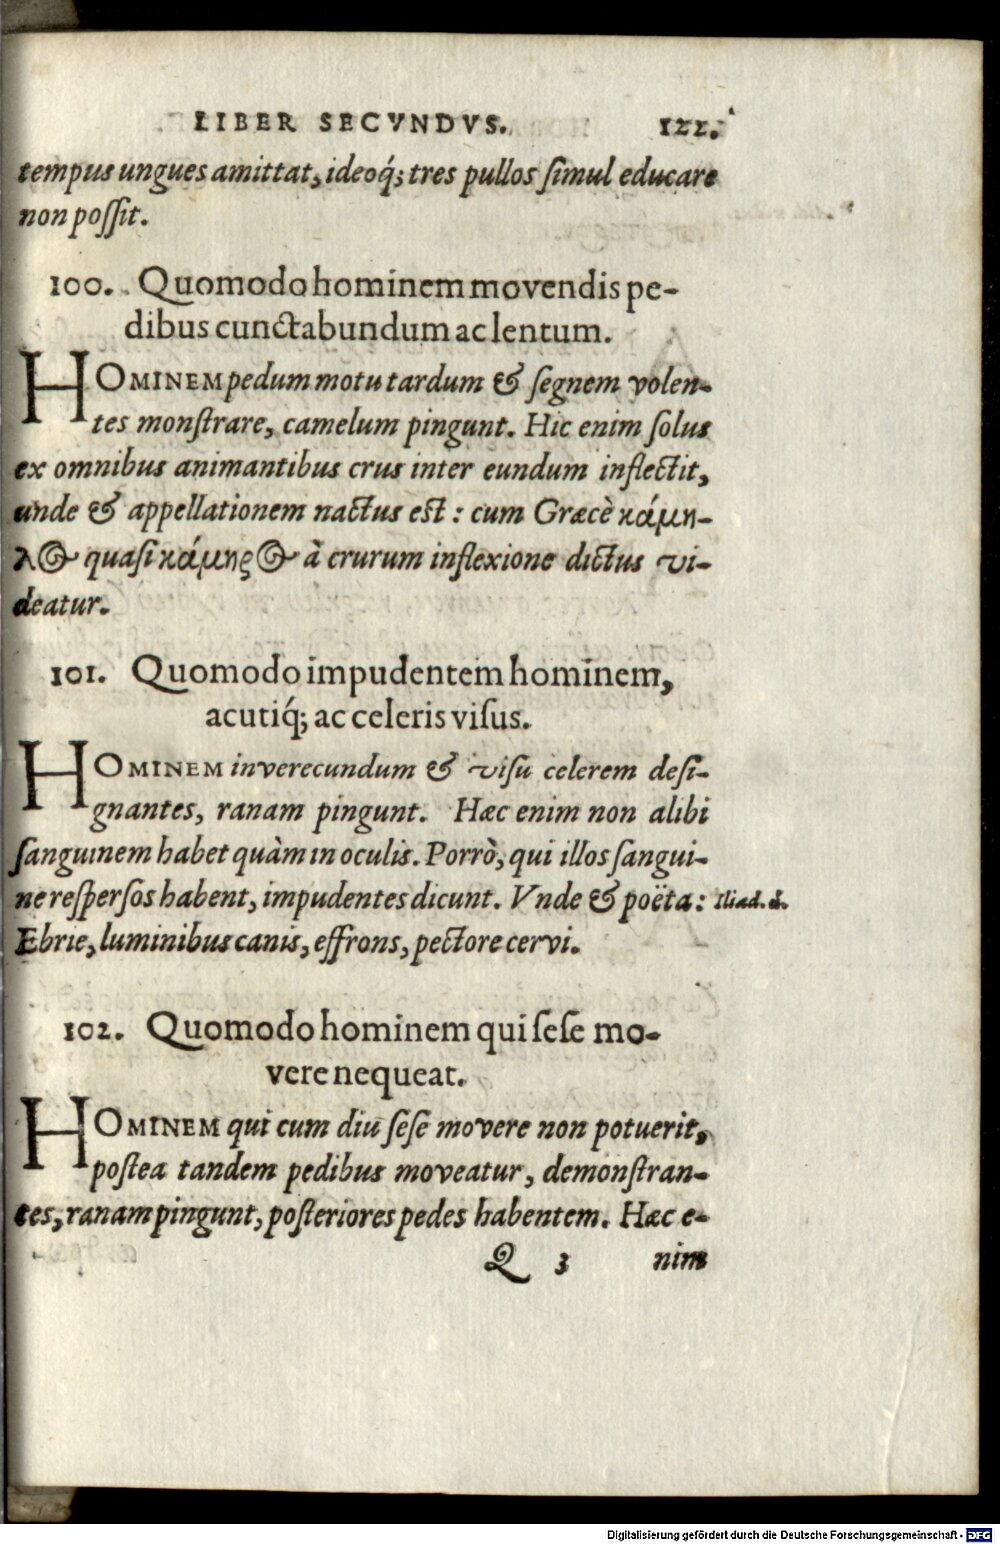 LIBER SECVNDVS. 121.
tempus ungues amittat, ideoq́; tres pullos ſimul educare
non poſſit.
100. Quomodo hominem movendis pe-
dibus cunctabundum ac lentum.
HOMINEM pedum motu tardum & ſegnem volen-
tes monſtrare, camelum pingunt. Hic enim ſolus
ex omnibus animantibus crus inter eundum inflectit,
unde & appellationem nactus eſt: cum Græcè κάμη-
λος quaſi κάμηςος à crurum inflexione dictus vi-
deatur.
101. Quomodo impudentem hominem,
acutiq́; ac celeris viſus.
HOMINEM inverecundum & viſu celerem deſi-
gnantes, ranam pingunt. Hæc enim non alibi
ſanguinem habet quàm in oculis. Porrò, qui illos ſangui-
ne reſperſos habent, impudentes dicunt. Vnde & poëta: Iliad. α.
Ebrie, luminibus canis, effrons, pectore cervi.
102. Quomodo hominem qui ſeſe mo-
vere nequeat.
HOMINEM qui cum diu ſeſe movere non potuerit,
poſtea tandem pedibus moveatur, demonſtran-
tes, ranam pingunt, poſteriores pedes habentem. Hæc e-
Q 3 nim
Digitalisierung gefördert durch die Deutsche Forschungsgemeinschaft - DFG